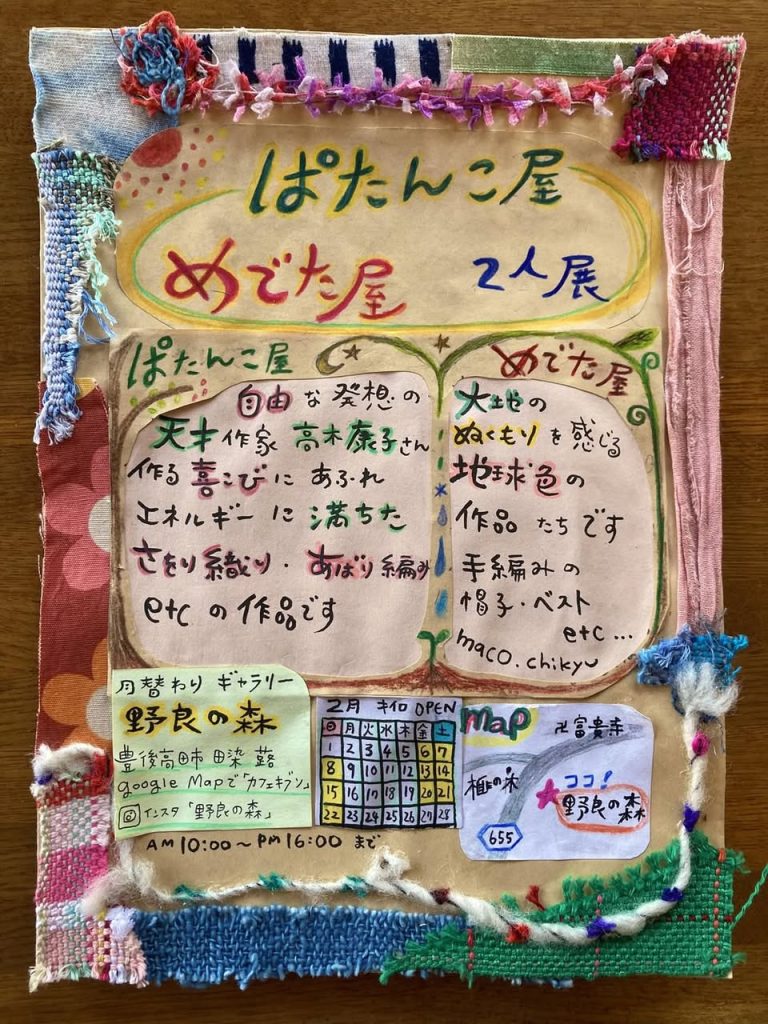 ぱたんこ屋
めでた屋 2人展
ぱたんこ屋
自由な発想の
天才作家 高木康子さん
作る喜こびにあふれ
エネルギーに満ちた
さをり織り・あばり編み
etcの作品です
めでた屋
大地の
ぬくもりを感じる
地球色の
作品たちです
手編みの
帽子・ベスト
etc...
maco.chikyu
月替わりギャラリー
野良の森
豊後高田市 田染 蕗
google Mapで「カフェキブン」
インスタ「野良の森」
AM10:00～PM16:00 まで
2月 OPEN
日 月 火 水 木 金 土
1 2 3 4 5 6 7
8 9 10 11 12 13 14
15 16 17 18 19 20 21
22 23 24 25 26 27 28
map
卍富貴寺
榧の木
ココ!
野良の森
655